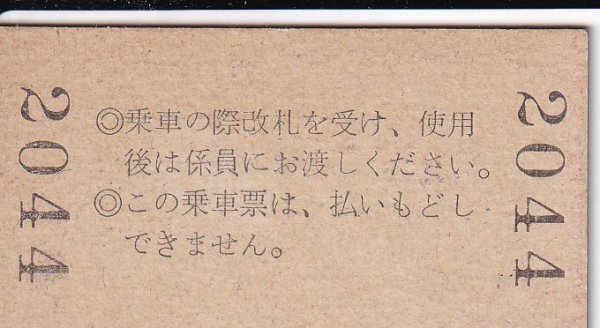 2044
◎乗車の際改札を受け、使用
後は係員にお渡しください。
◎この乗車票は、払いもどし
できません。
2044